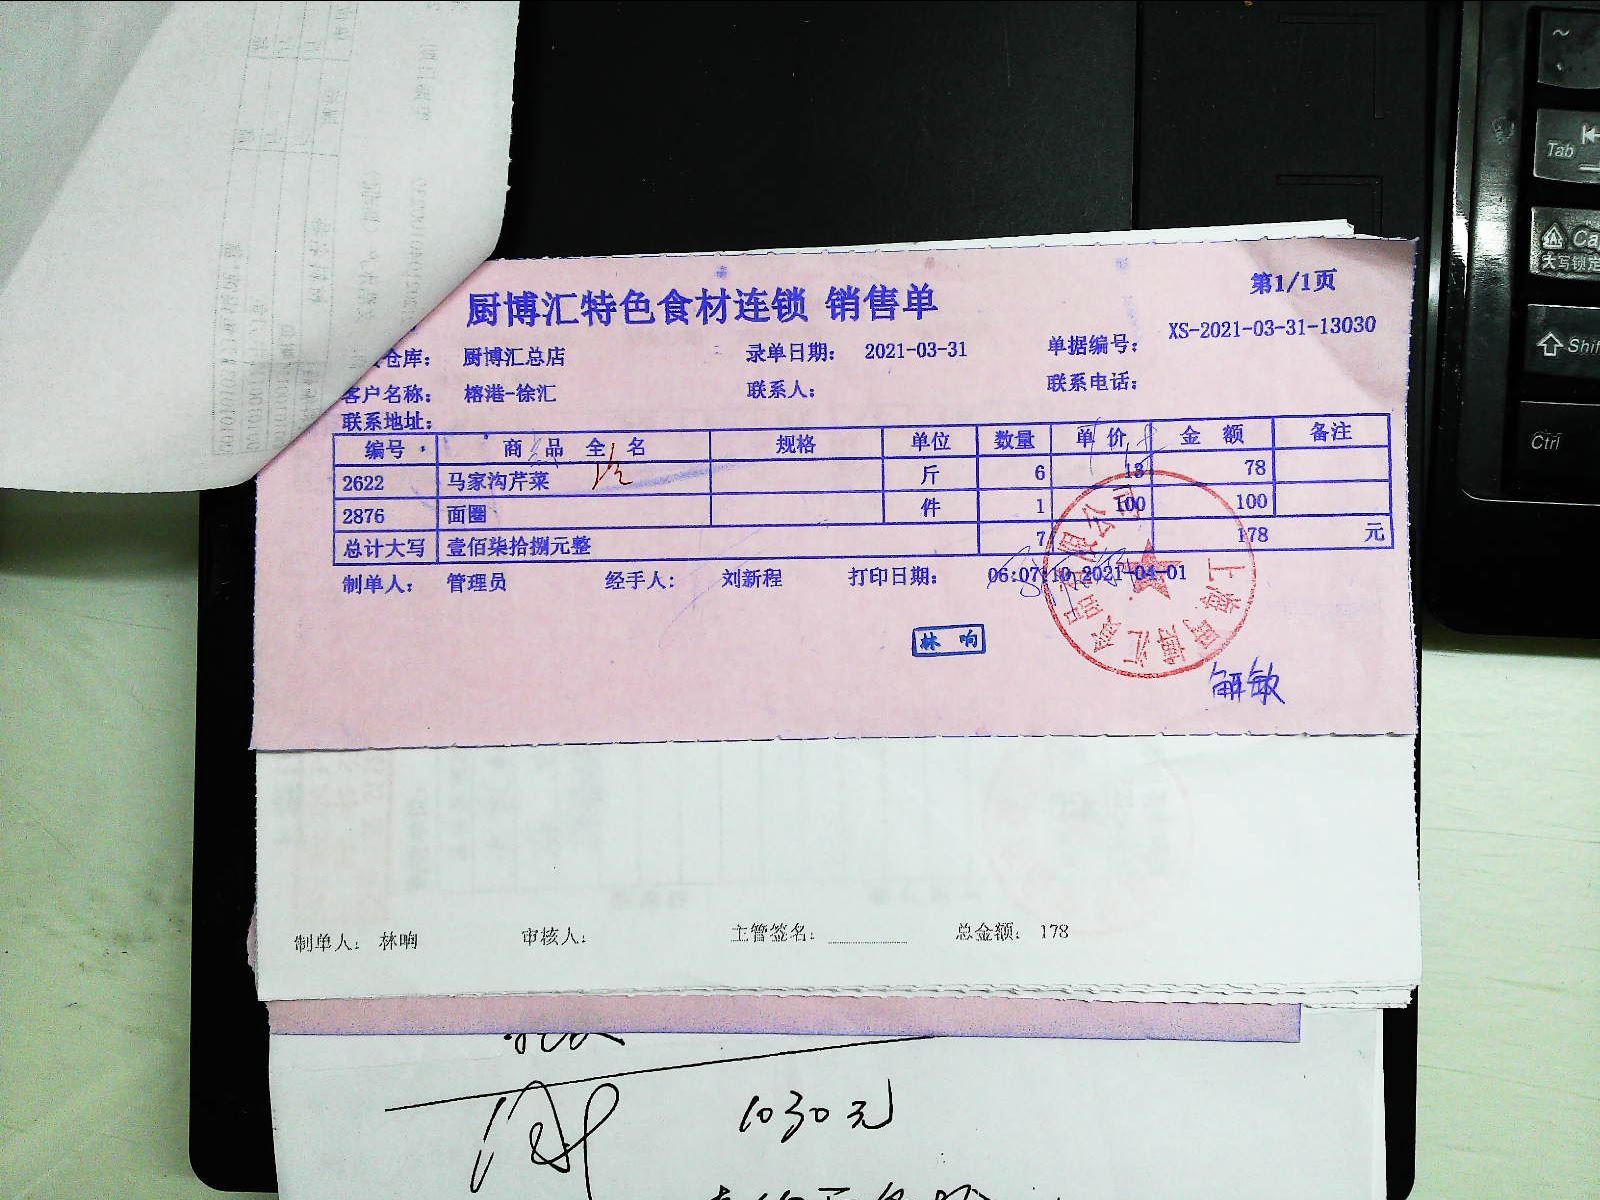 厨博汇特色食材连锁 销售单
第1/1页
仓库： 厨博汇总店 录单日期： 2021-03-31 单据编号： XS-2021-03-31-13030
客户名称： 榕港-徐汇 联系人： 联系电话：
联系地址：
编号 商品全名 规格 单位 数量 单价 金额 备注
2622 马家沟芹菜 斤 6 13 78
2876 面圈 件 1 100 100
总计大写 壹佰柒拾捌元整 7 178 元
制单人： 管理员 经手人： 刘新程 打印日期： 06:07:10 2021-04-01
林响
上海厨博汇食品有限公司
解敏
制单人： 林响 审核人： 主管签名： 总金额： 178
1030元
~
Tab
Ca
大写锁定
Shif
Ctrl